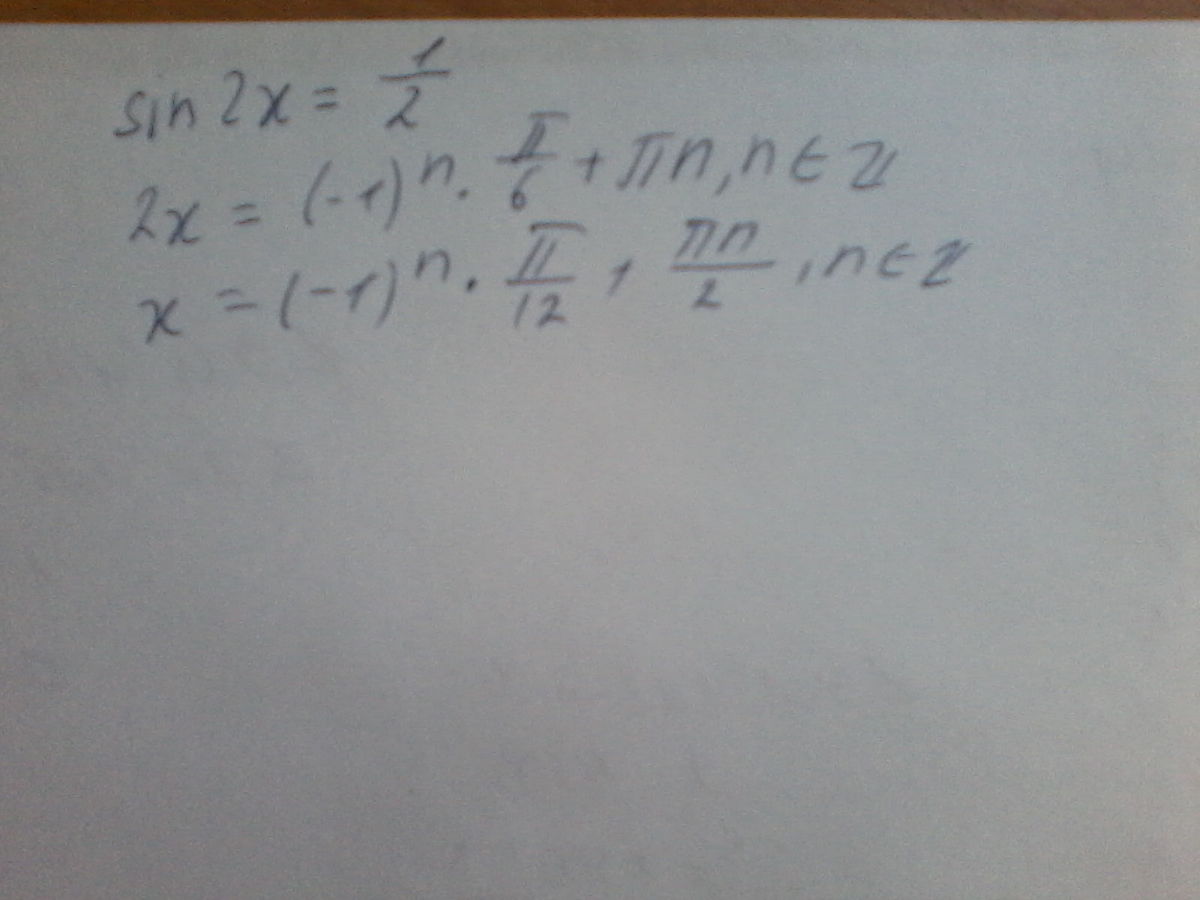 sin 2x = 1/2
2x = (-1)^n · π/6 + πn, n ∈ Z
x = (-1)^n · π/12 + πn/2, n ∈ Z